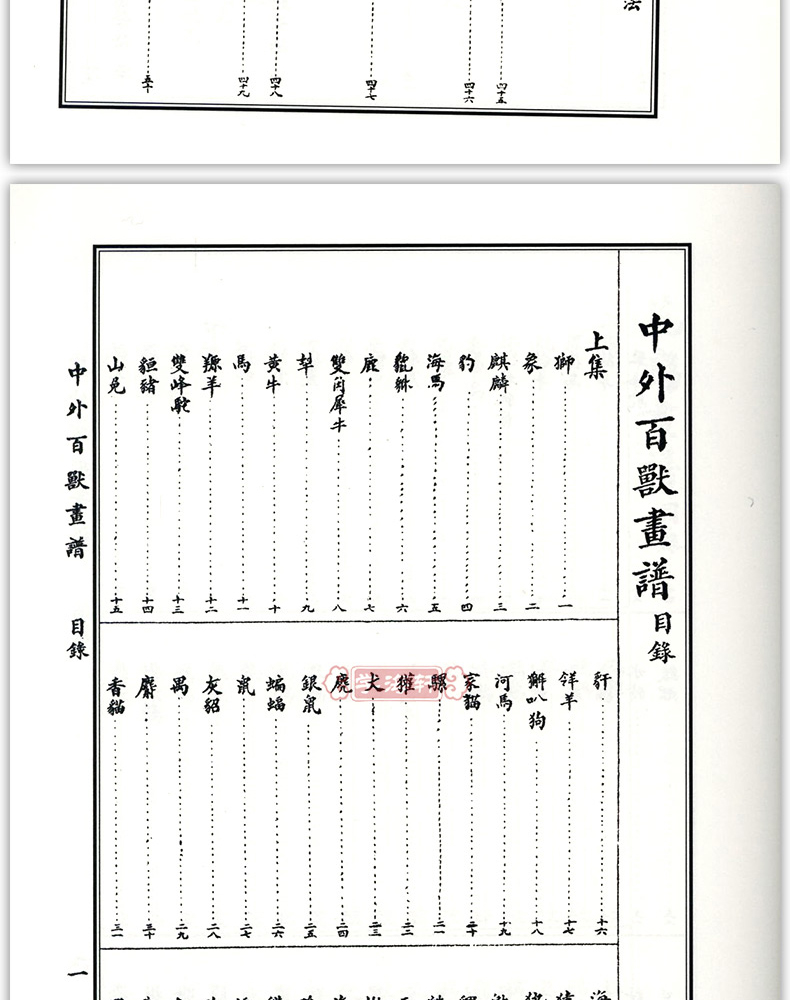 法
四十五
四十六
四十七
四十八
四十九
五十
中外百獸畫譜 目錄
上集
獅 一
象 二
麒麟 三
豹 四
海馬 五
貔貅 六
鹿 七
雙角犀牛 八
犂 九
黃牛 十
馬 十一
羱羊 十二
雙峰駝 十三
貆豬 十四
山兔 十五
豻 十六
羊 十七
獬叭狗 十八
河馬 十九
家貓 二十
騾 二一
獾 二二
犬 二三
麂 二四
銀鼠 二五
蝙蝠 二六
鼠 二七
灰貂 二八
禺 二九
麝 三十
香貓 三一
中外百獸畫譜 目錄 一
学海轩